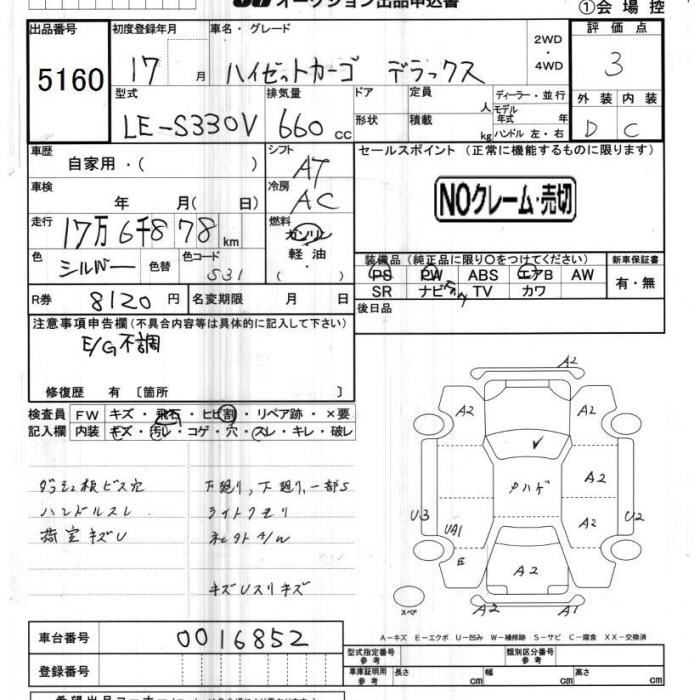 オークション出品申込書
①会場控
出品番号 初度登録年月 車名・グレード 2WD・4WD 評価点
5160 17月 ハイゼットカーゴ デラックス 3
型式 排気量 ドア 定員 人 ディーラー・並行 外装 内装
LE-S330V 660cc 形状 積載 kg モデル年式 年 ハンドル 左・右 D C
車歴 シフト セールスポイント (正常に機能するものに限ります)
自家用・( ) AT
NOクレーム・売切
車検 冷房
年 月( 日) AC
走行 17万6千878km 燃料 ガソリン
色 シルバー 色替 色コード S31 軽油・( )
装備品(純正品に限り○をつけてください) 新車保証書
PS PW ABS エアB AW 有・無
SR ナビ TV カワ
R券 8120円 名変期限 月 日 後日品
注意事項申告欄(不具合内容等は具体的に記入して下さい)
E/G不調
修復歴 有〔箇所 〕
検査員 FW キズ・飛石・ヒビ割・リペア跡・×要
記入欄 内装 キズ・汚レ・コゲ・穴・スレ・キレ・破レ
A2
A2 A2
ハンドルスレ
荷室キズU
A2
U3 UA1 A2 U2
E A2
キズUスリキズ
スペア A2 A1
A-キズ E-エクボ U-凹み W-補修跡 S-サビ C-腐食 XX-交換済
車台番号 0016852
登録番号
型式指定番号 参考 類別区分番号 参考
車庫証明用 参考 長さ cm 幅 cm 高さ cm